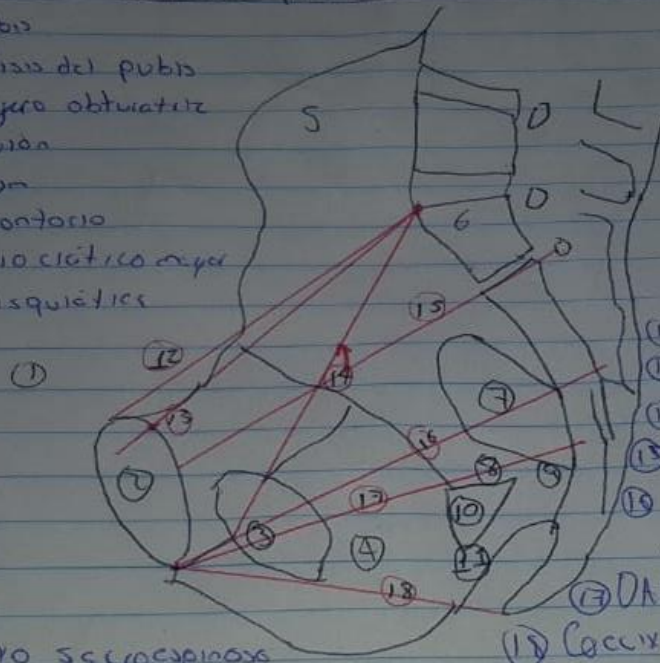 sis del pubis
jero obturatriz
ontorio
io ciático mayor
squiática
5
D
D
6
D
15
12
1
14
13
7
16
2
8
9
17
10
15
3
4
11
16
18
17 DA
18 Coccix
o sacroespinoso